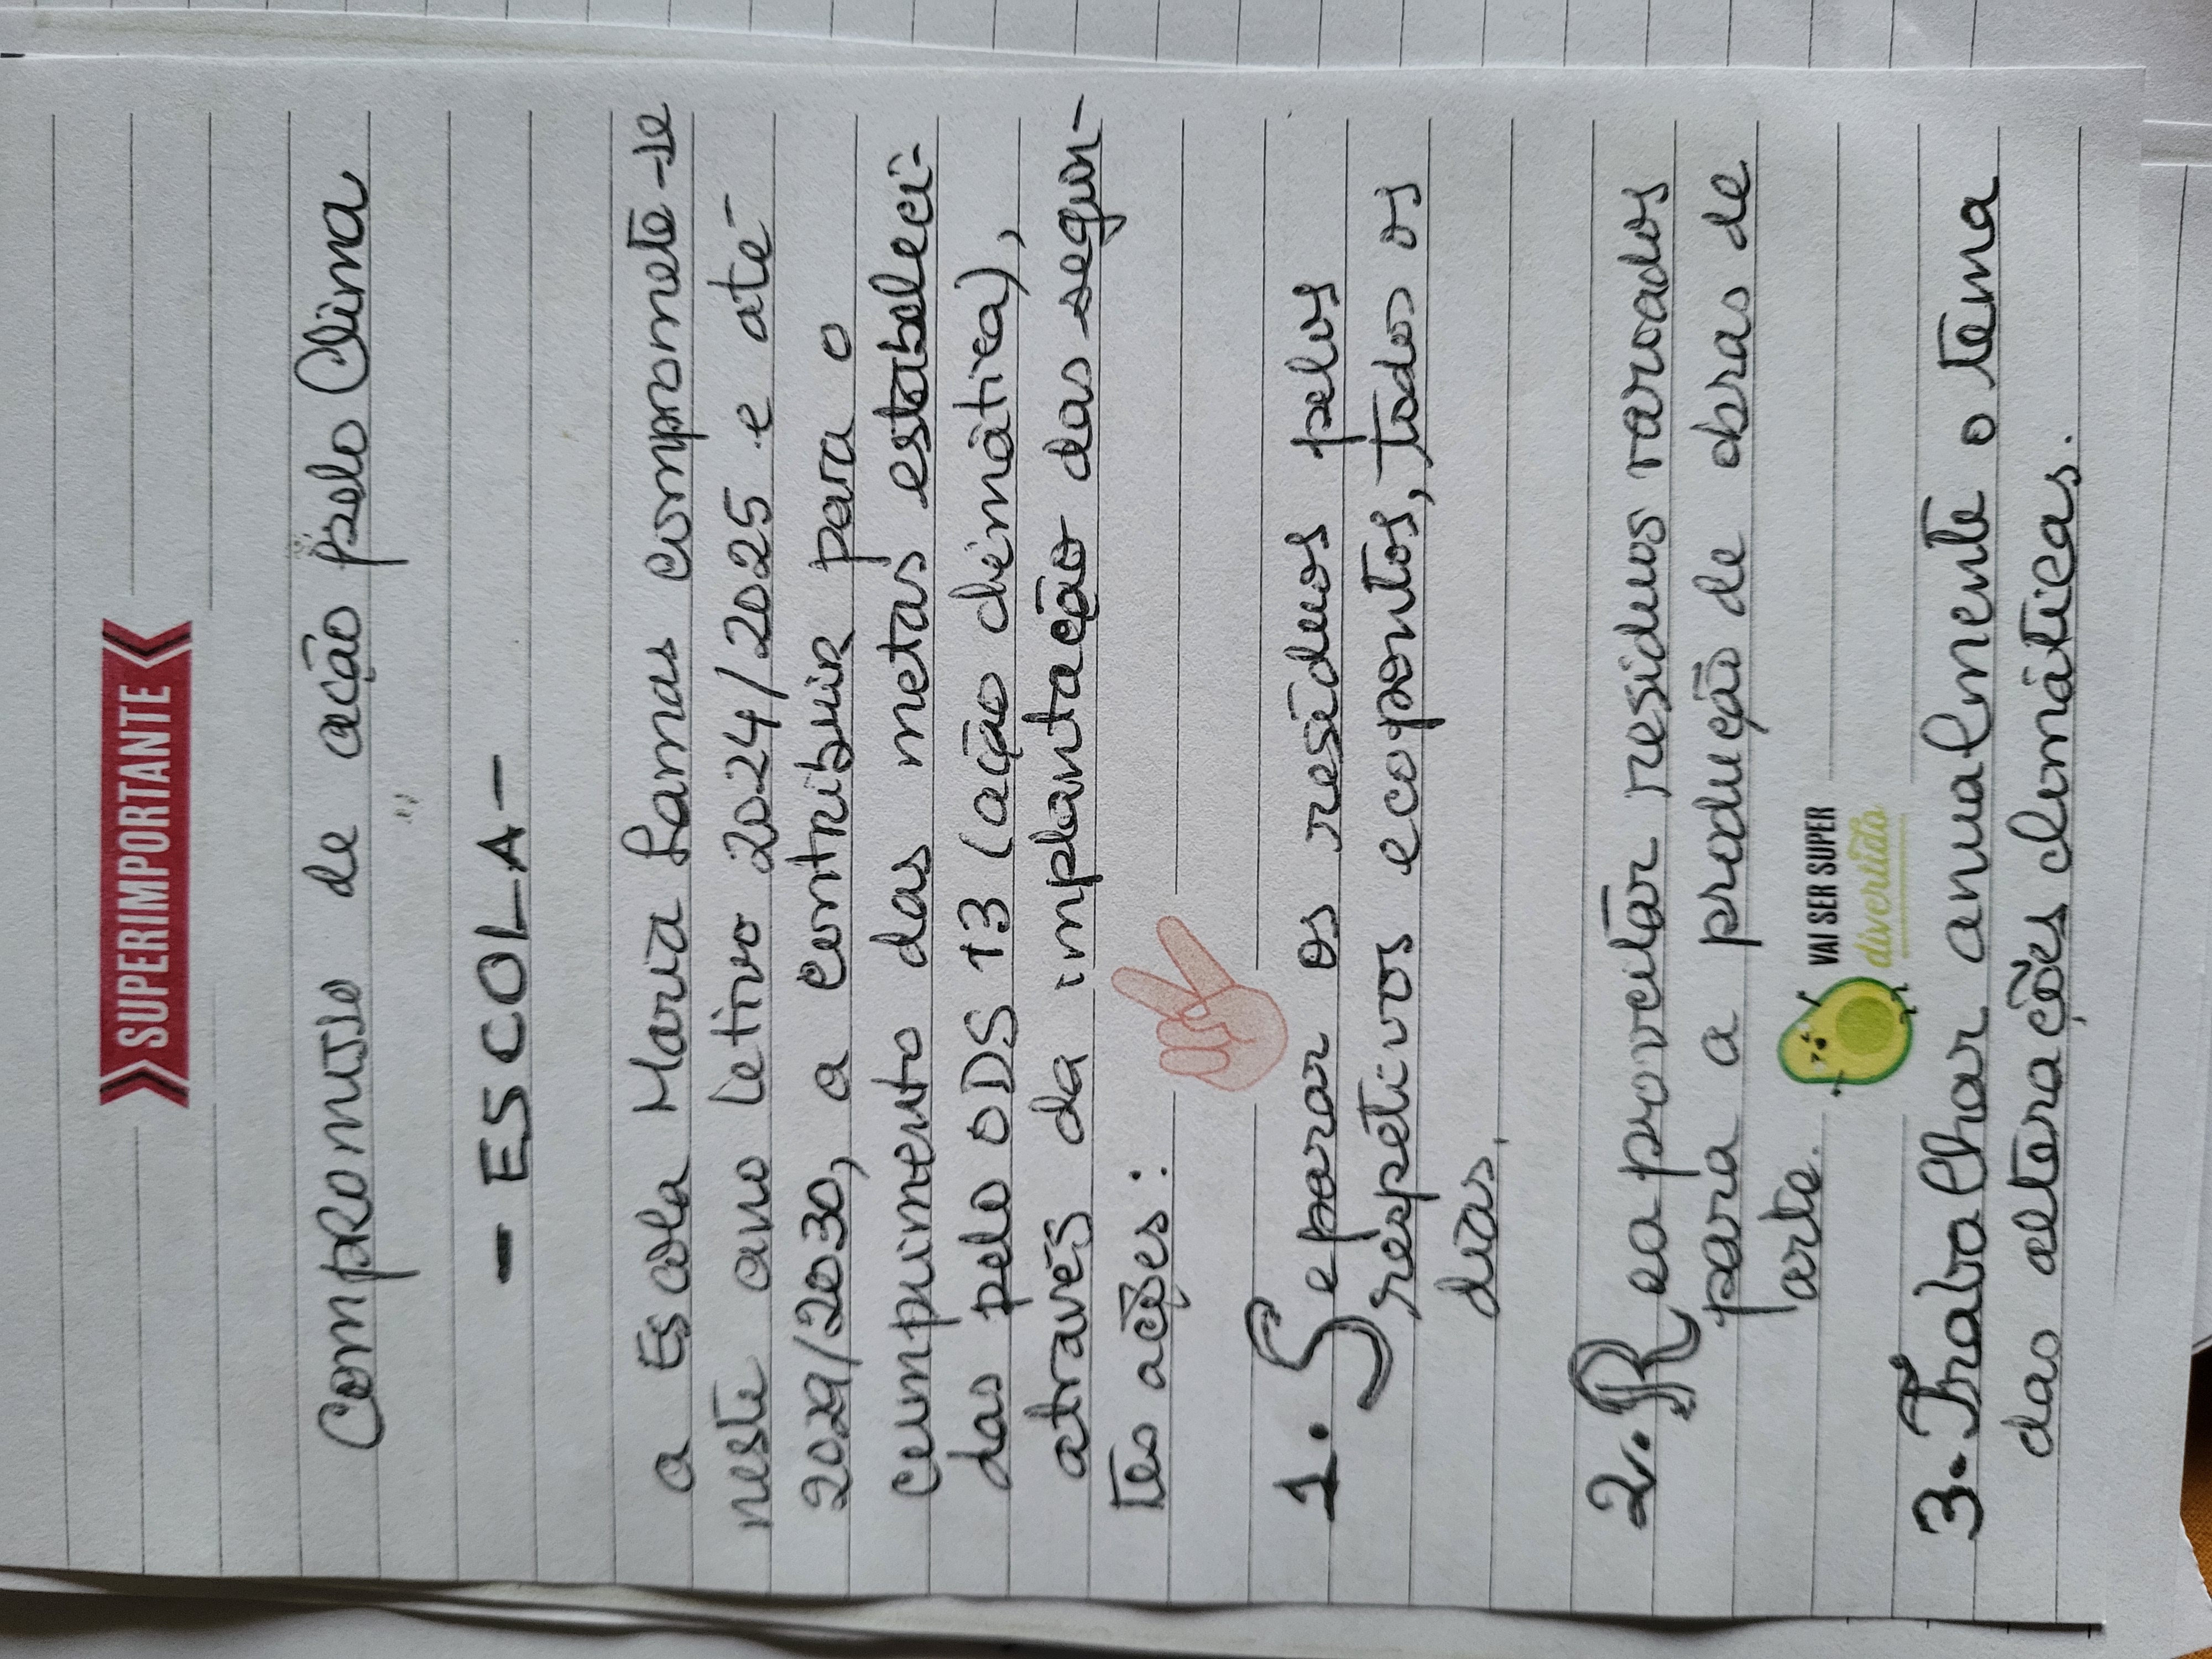 SUPERIMPORTANTE
Compromisso de ação pelo Clima
- ESCOLA -
a Escola Maria Lamas compromete-se
neste ano letivo 2024/2025 e até
2029/2030, a contribuir para o
cumprimento das metas estabeleci-
das pelo ODS 13 (ação climática),
através da implantação das seguin-
tes ações:
1. Separar os resíduos pelos
respetivos ecopontos, todos os
dias.
2. Reaproveitar resíduos variados
para a produção de obras de
arte.
VAI SER SUPER
divertido
3. Trabalhar anualmente o tema
das alterações climáticas.